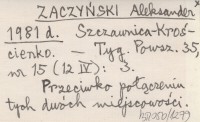 ZACZYŃSKI Aleksander
1981 d. Szczawnica-Kroś-
cienko. - Tyg. Powsz. 35,
nr 15 (12 IV): 3.
Przeciwko połączeniu
tych dwóch miejscowości.